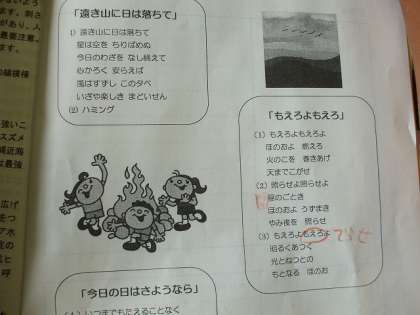 「遠き山に日は落ちて」
1) 遠き山に日は落ちて
星は空を ちりばめぬ
今日のわざを なし終えて
心かろく 安らえば
風はすずし この夕べ
いざや楽しき まどいせん
(2) ハミング
「もえろよもえろ」
(1) もえろよもえろよ
ほのおよ 燃えろ
火のこを 巻きあげ
天までこがせ
(2) 照らせよ照らせよ
昼のごとき
ほのおよ うずまき
やみ夜を 照らせ
(3) もえろよもえろよ てらせ
明るくあつく
光とねつとの
もとなる ほのお
「今日の日はさようなら」
(1) いつまでもたえることなく